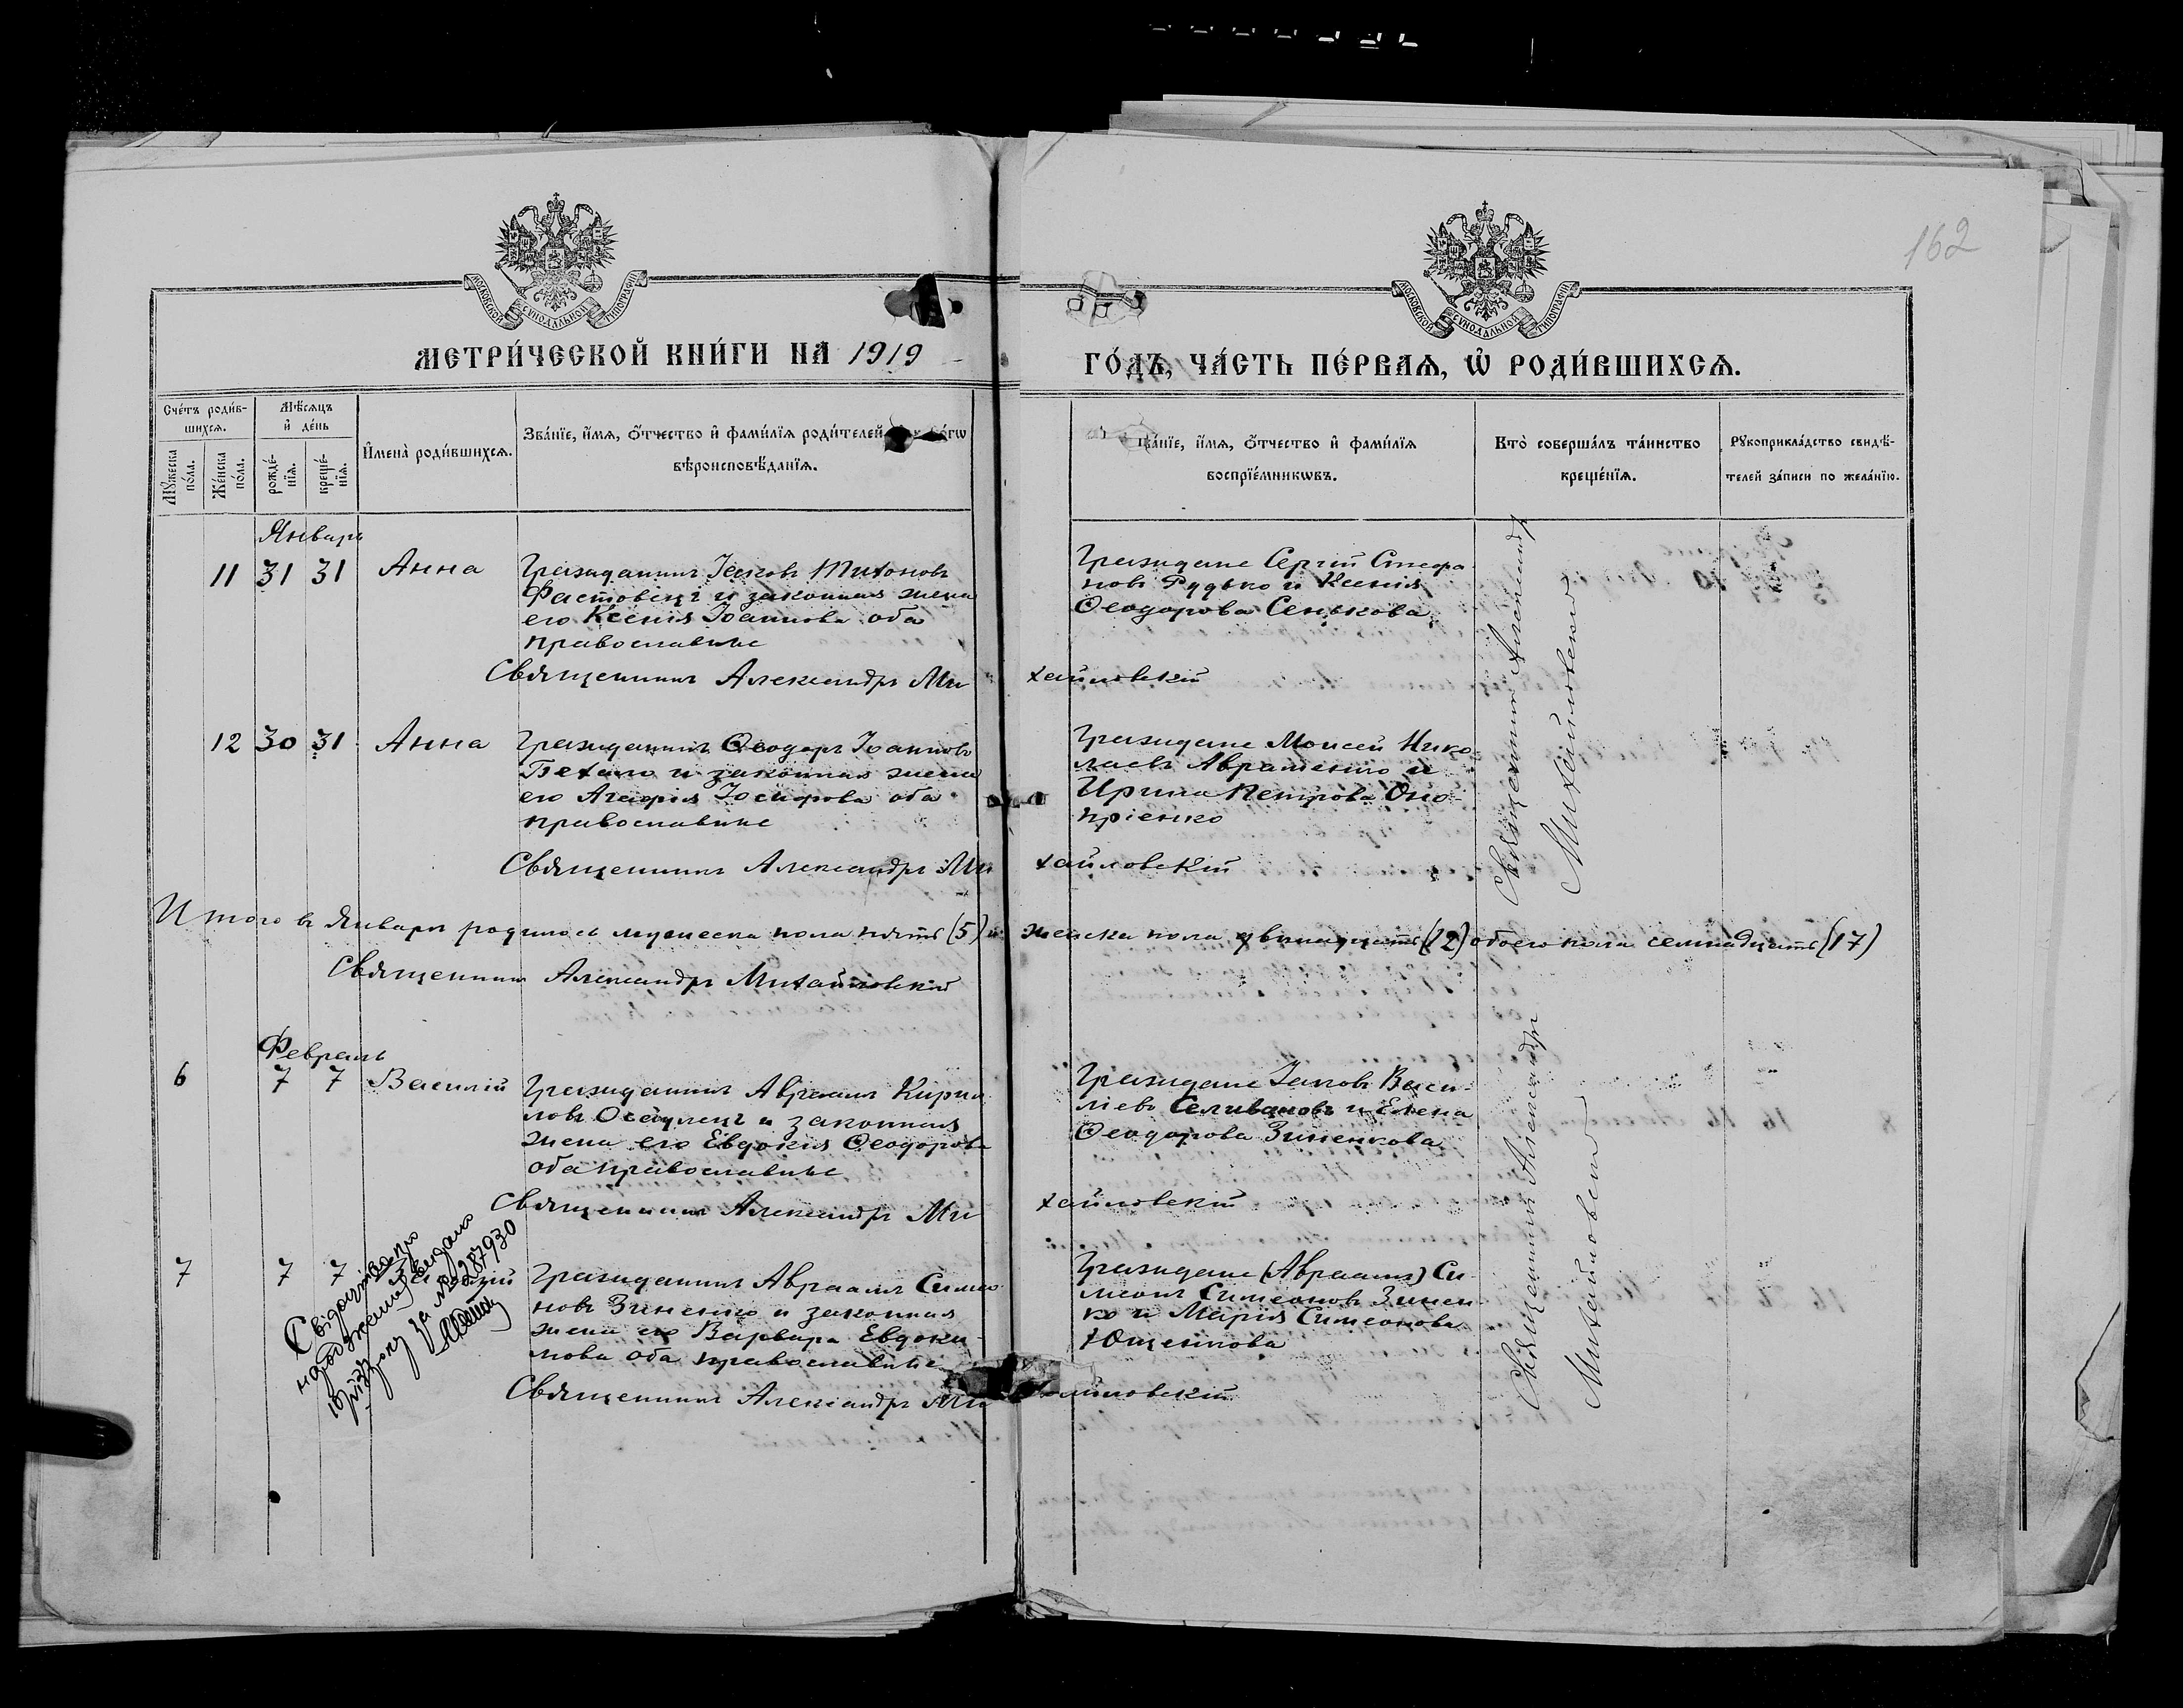 162
МОСКОВСКОЙ СѴНОДАЛЬНОЙ ТИПОГРАФІИ
МОСКОВСКОЙ СѴНОДАЛЬНОЙ ТИПОГРАФІИ
МЕТРИ́ЧЕСКОЙ КНИ́ГИ НА 1919
ГО́ДЪ, ЧА́СТЬ ПЕ́РВАѦ, Ѡ҆ РОДИ́ВШИХСѦ.
Сче́тъ роди́в-
шихсѧ.
Мꙋ́жеска по́ла.
Же́нска по́ла.
Мѣ́сѧцъ
и҆ де́нь
рожде́-
нїѧ.
креще́-
нїѧ.
И҆мена̀ роди́вшихсѧ.
Зва́нїе, и҆́мѧ, ѻ҆́тчество и҆ фами́лїѧ роди́телей
вѣроисповѣ́данїѧ.
Зва́нїе, и҆́мѧ, ѻ҆́тчество и҆ фами́лїѧ
воспрїе́мникѡвъ.
Кто̀ соверша́лъ та́инство
креще́нїѧ.
Рꙋкоприкла́дство свидѣ́-
телей за́писи по жела́нїю.
Январь
11 31 31 Анна
Гражданинъ Іаковъ Тихоновъ
Фастовецъ и законная жена
его Ксенія Іоаннова оба
православные
Граждане Сергій Стефа
новъ Рудько и Ксенія
Ѳеодорова Сенькова
Священникъ Александръ Михайловскій
Священникъ Александръ
Михайловскій
12 30 31 Анна
Гражданинъ Ѳеодоръ Іоанновъ
Бехало и законная жена
его Агафія Іосифова оба
православные
Граждане Моисей Нико
лаевъ Авраменко и
Ирина Петрова Оно-
пріенко
Священникъ Александръ Михайловскій
Итого въ Январѣ родилось мужеска пола пять (5) и женска пола двѣнадцать (12) обоего пола семнадцать (17)
Священникъ Александръ Михайловскій
Февраль
6 7 7 Василій
Гражданинъ Авраамъ Кирил
ловъ Осадчецъ и законная
жена его Евдокія Ѳеодорова
оба православные
Граждане Іаковъ Васи
ліевъ Селивановъ и Елена
Ѳеодорова Зиненкова
Священникъ Александръ Михайловскій
Священникъ Александръ
Михайловскій
7 7 7
Гражданинъ Авраамъ Симео
новъ Зиненко и законная
жена его Варвара Евдоки-
мова оба православные
Граждане (Авраамъ) Си
меонъ Симеоновъ Зинен
ко и Марія Симеонова
Ющенкова
Свідоцтво про
народження видано
за № 287930
Священникъ Александръ Михайловскій